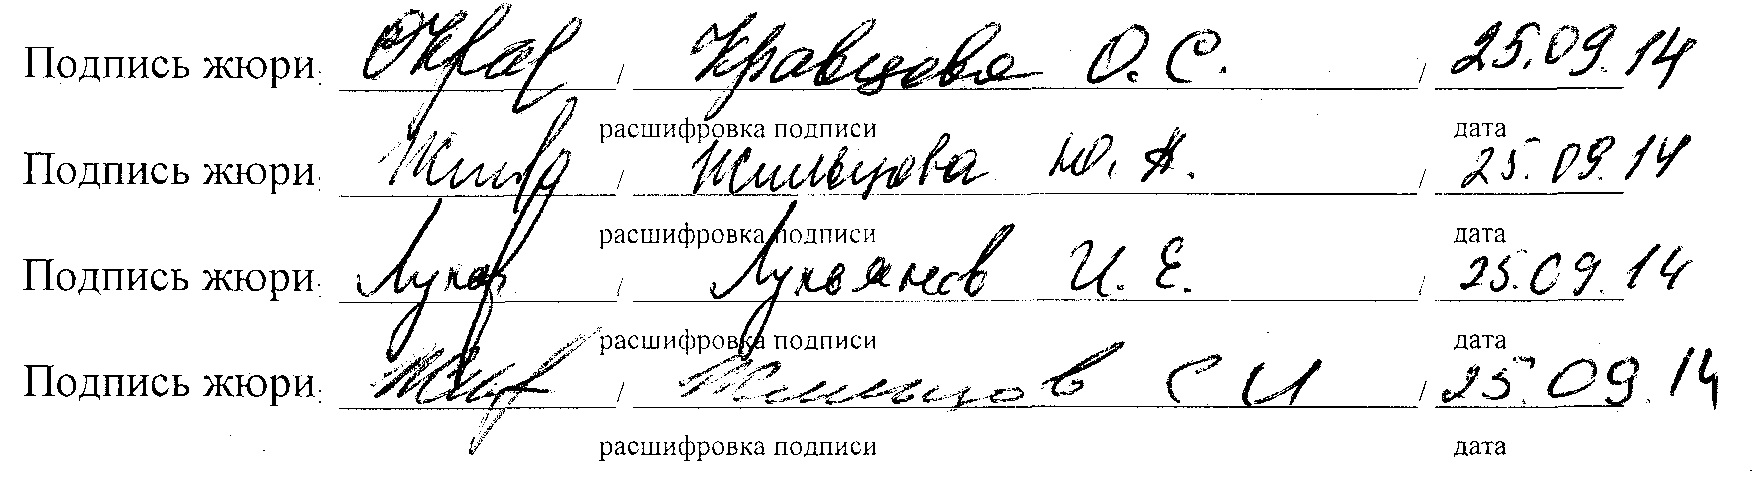 Подпись жюри: / Кравцова О. С. / 25.09.14
расшифровка подписи дата
Подпись жюри: / Жильцова Ю. А. / 25.09.14
расшифровка подписи дата
Подпись жюри: / Лукьянов И. Е. / 25.09.14
расшифровка подписи дата
Подпись жюри: / Жильцов С И / 25.09.14
расшифровка подписи дата